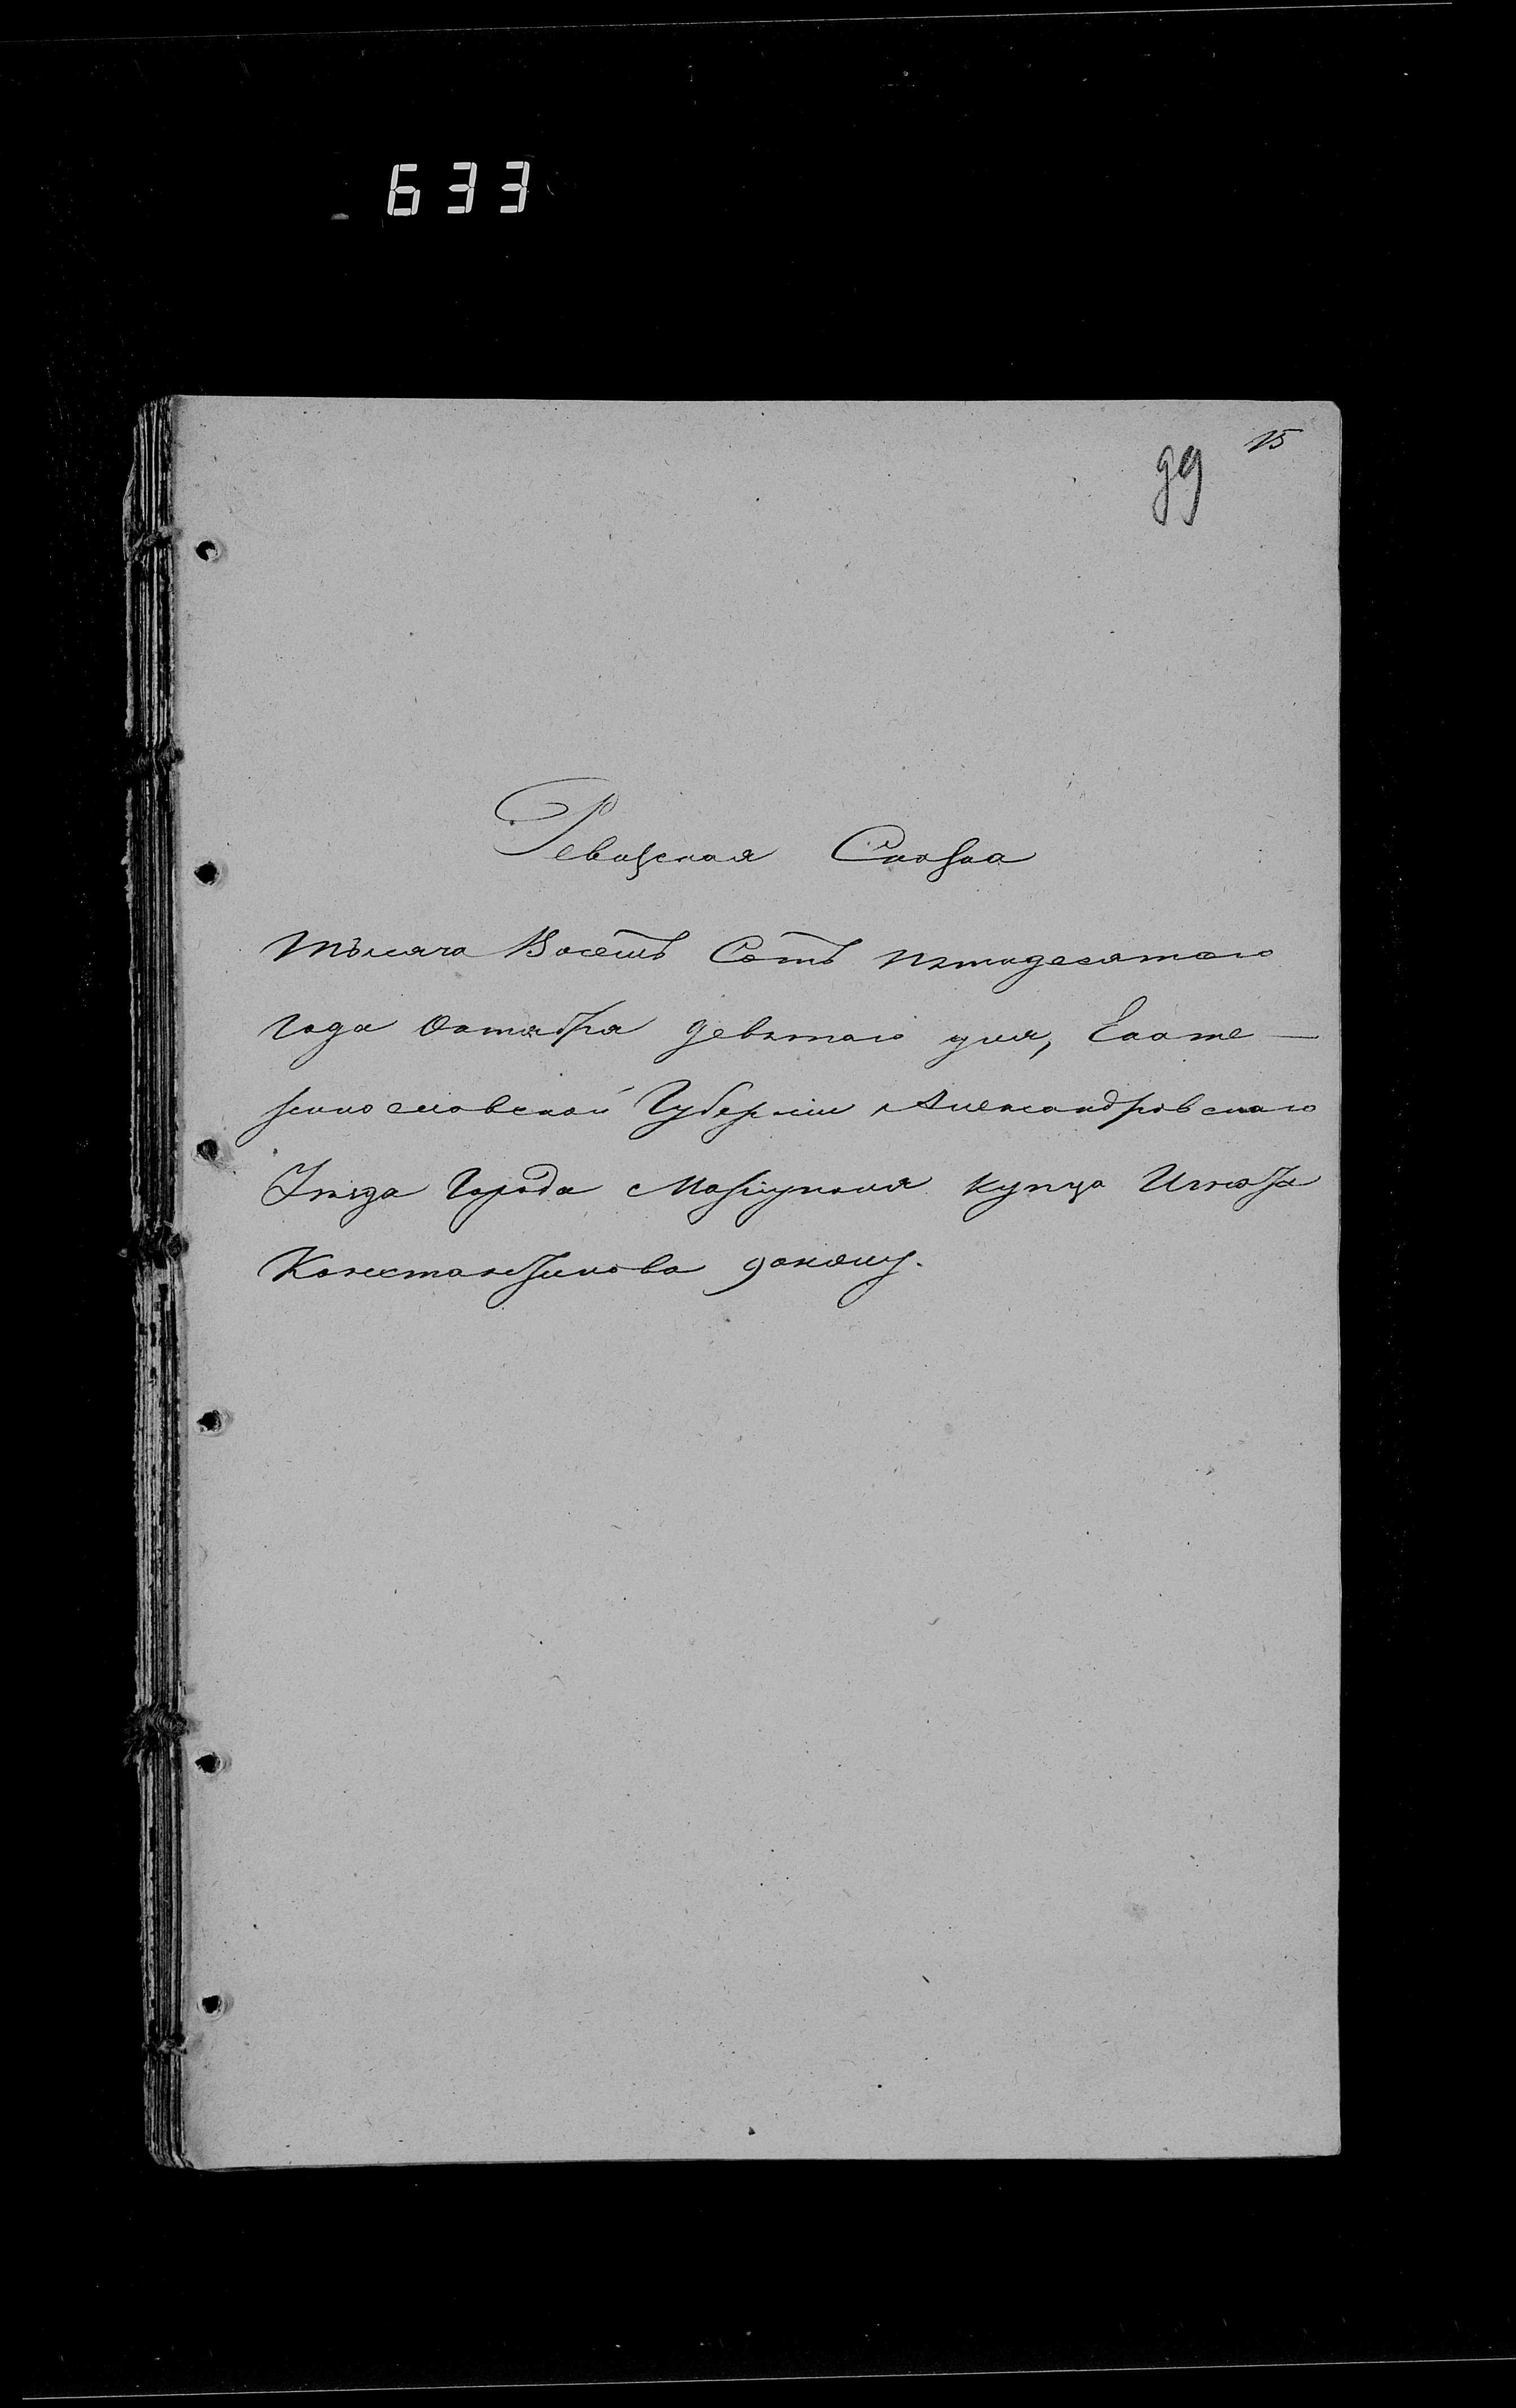 633
15
99
Ревизская Сказка
Тысяча Восемь Сотъ пятидесятаго
Года Октября девятаго дня, Екате-
ринославской Губерніи Александровскаго
Уѣзда Города Маріуполя купца
Константинова